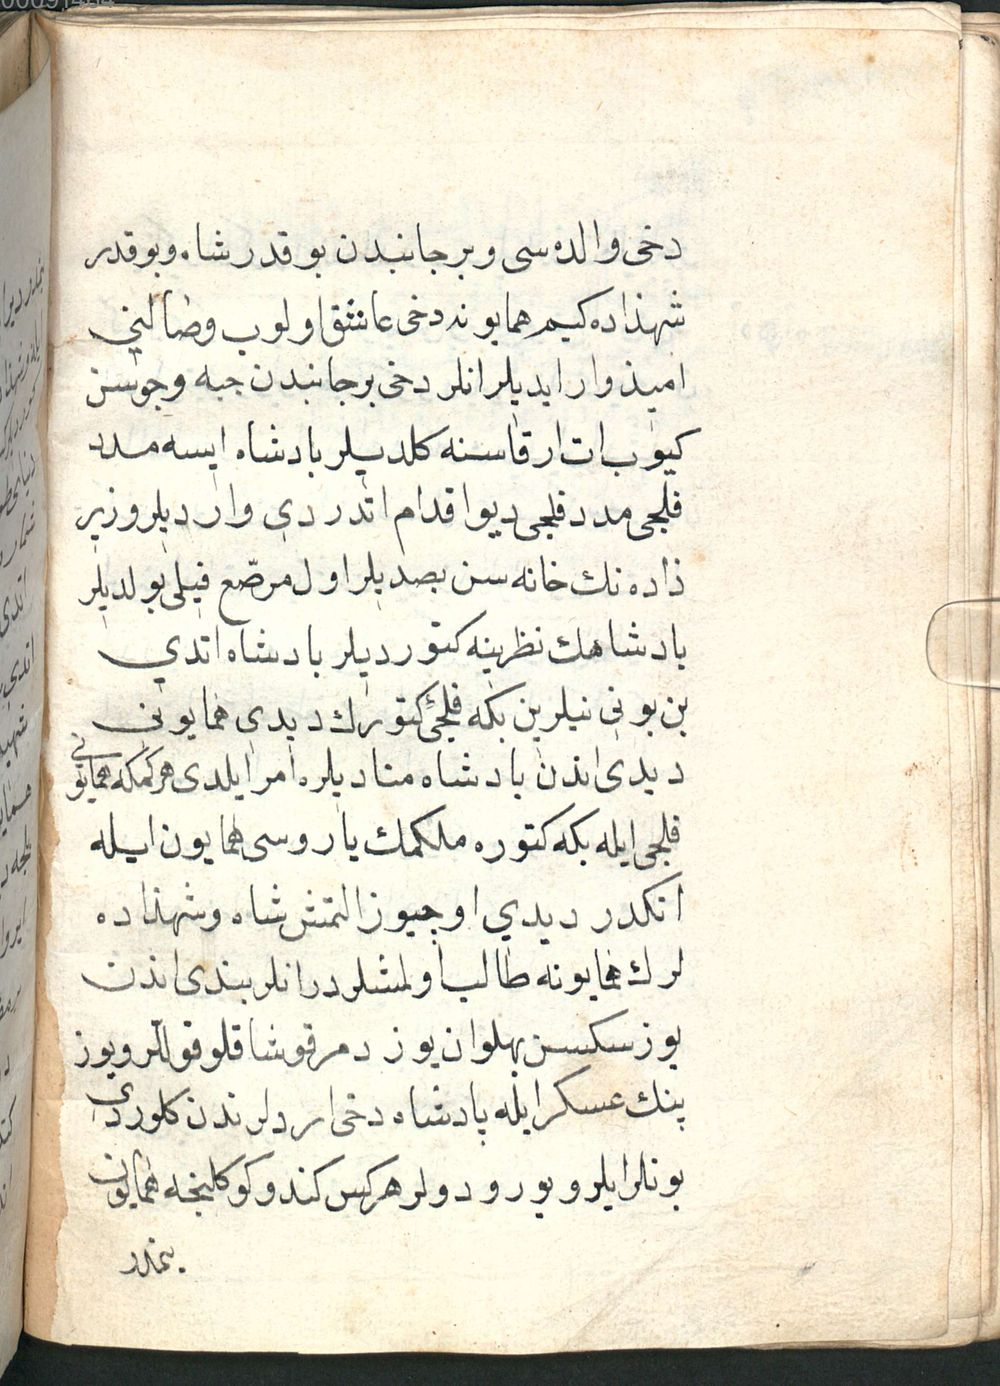 دخی والده سی وبر جانبدن بو قدر شاه وبو قدر
شهذاده کیم همایونه دخی عاشق اولوب وصالنی
امیذوار ایدیلر انلر دخی بر جانبدن جبه وجوشن
کیوب ات ارقاسنه کلدیلر بادشاه ایسه مدد
قلجی مدد قلجی دیو اقدام اتدردی واردیلر وزیر
ذاده نك خانه سن بصدیلر اول مرصّع قیلی بولدیلر
بادشاهك نظرینه کتوردیلر بادشاه اتدي
بن بونی نیلرین بکه قلجیٔ کتورك دیدی همایونی
دیدی اندن بادشاه منادیلره امر ایلدی هر کمکه همایونی
قلجی ایله بکه کتوره ملکمك یاروسی همایون ایله
انکدر دیدي اوجیوز التمش شاه وشهذاده
لرك همایونه طالب اولمشلردر انلر بندی اندن
یوز سکسن بهلوان یوز دمر قوشاقلو قوللر ویوز
بنك عسکر ایله پادشاه دخی اردلرندن کلوردی
بونلر ایلرو یورودولر هرکس کندو کوکلنجه همایون
بنمدر